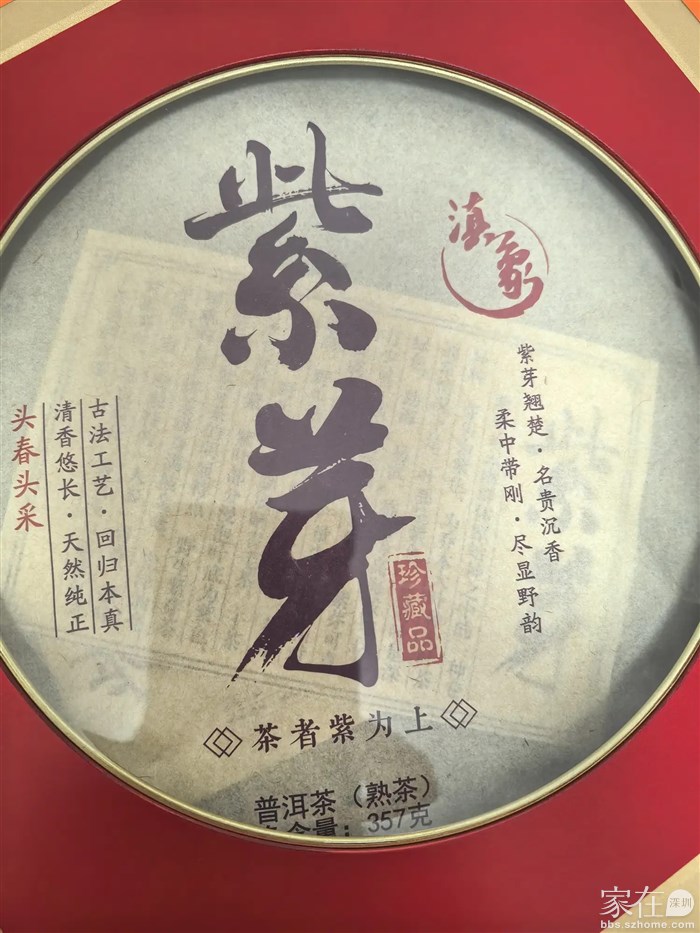 紫芽
滇象
紫芽翘楚·名贵沉香
柔中带刚·尽显野韵
珍藏品
古法工艺·回归本真
清香悠长·天然纯正
头春头采
茶者紫为上
普洱茶（熟茶）
含量：357克
家在深圳
bbs.szhome.com